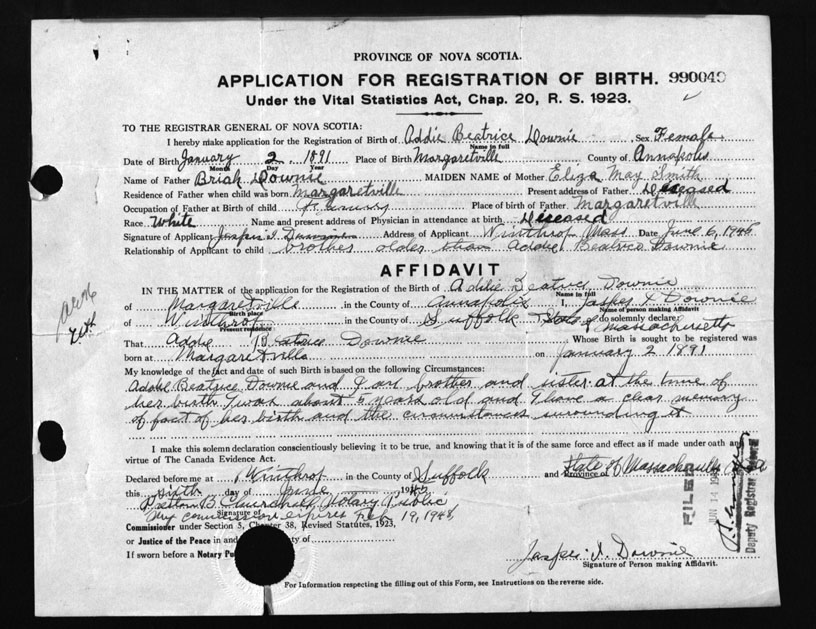 PROVINCE OF NOVA SCOTIA.
APPLICATION FOR REGISTRATION OF BIRTH. 990049
Under the Vital Statistics Act, Chap. 20, R. S. 1923.
TO THE REGISTRAR GENERAL OF NOVA SCOTIA:
I hereby make application for the Registration of Birth of Addie Beatrice Downie Sex Female
Name in full
Date of Birth January 2 1891 Place of Birth Margaretville County of Annapolis
Month Day Year
Name of Father Briah Downie MAIDEN NAME of Mother Eliza May Smith
Residence of Father when child was born Margaretville Present address of Father Deseased
Occupation of Father at Birth of child Place of birth of Father Margaretville
Race White Name and present address of Physician in attendance at birth Deseased
Signature of Applicant Jasper I. Address of Applicant Winthrop Mass Date June 6, 1946
Relationship of Applicant to child brother older than Addie Beatrice Downie
AFFIDAVIT
IN THE MATTER of the application for the Registration of the Birth of Addie Beatrice Downie
Name in full
of Margaretville in the County of Annapolis I, Jasper I Downie
Birth place Name of person making Affidavit
of Winthrop in the County of Suffolk State of Massachusetts do solemnly declare:
Present residence
That Addie Beatrice Downie Whose Birth is sought to be registered was
born at Margaretville on January 2 1891
My knowledge of the fact and date of such Birth is based on the following Circumstances:
Addie Beatrice Downie and I are brother and sister at the time of
her birth I was about 5 years old and I have a clear memory
of fact of her birth and the circumstances surrounding it
I make this solemn declaration conscientiously believing it to be true, and knowing that it is of the same force and effect as if made under oath and
virtue of The Canada Evidence Act.
Declared before me at Winthrop in the County of Suffolk and Province of State of Massachusetts
this sixth day of June
B. Churchill, Notary Public
Signature of
My commission expires 19, 1948
Commissioner under Section 5, Chapter 38, Revised Statutes, 1923,
or Justice of the Peace in and County of
If sworn before a Notary
Jasper I. Downie
Signature of Person making Affidavit.
For Information respecting the filling out of this Form, see Instructions on the reverse side.
FILED
JUN 14
Deputy Registrar General